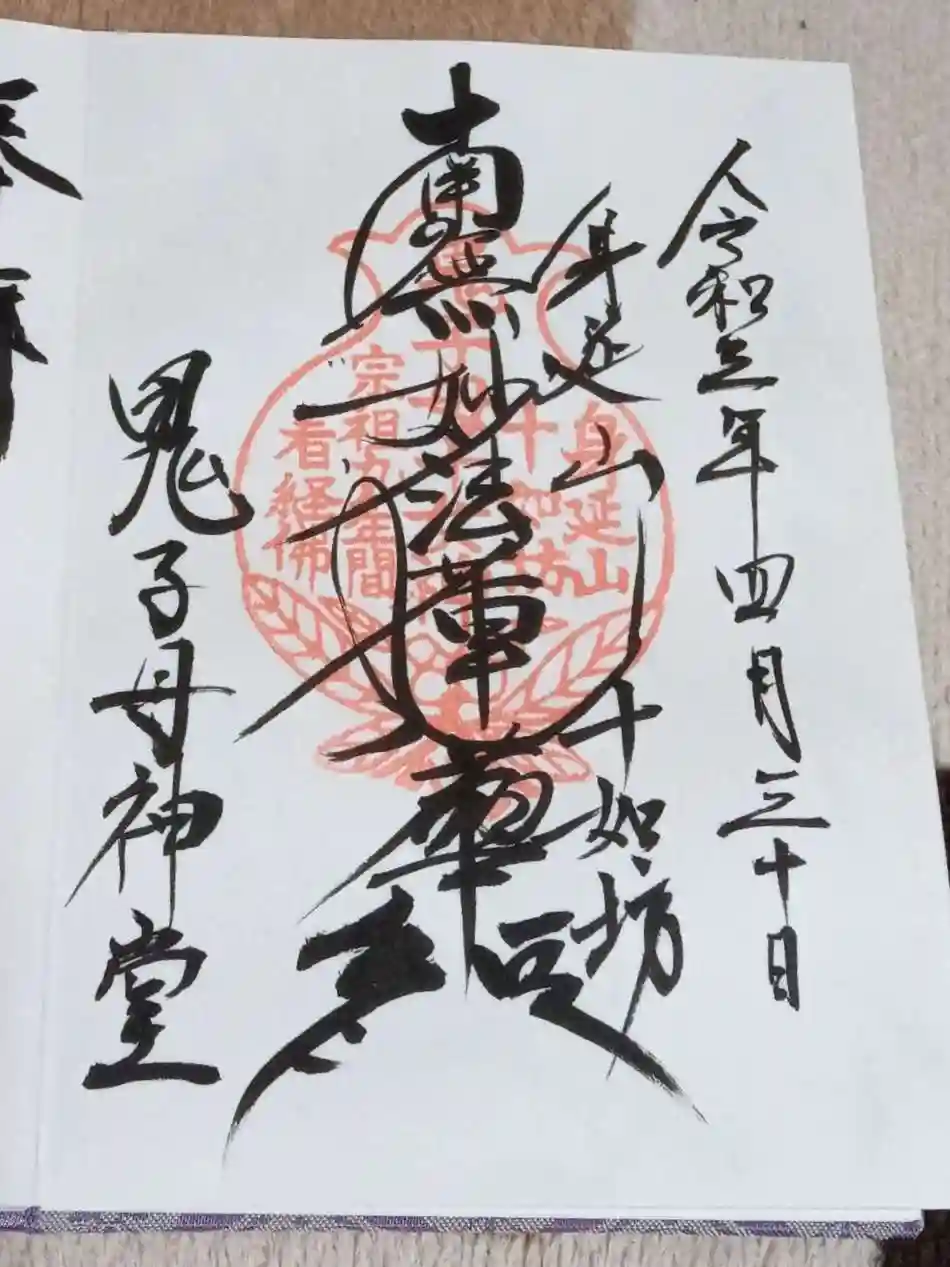 令和三年四月三十日
身延山十如坊
南無妙法蓮華経
鬼子母神堂
身延山
十如坊
宗祖九年間
看経佛
奉拝